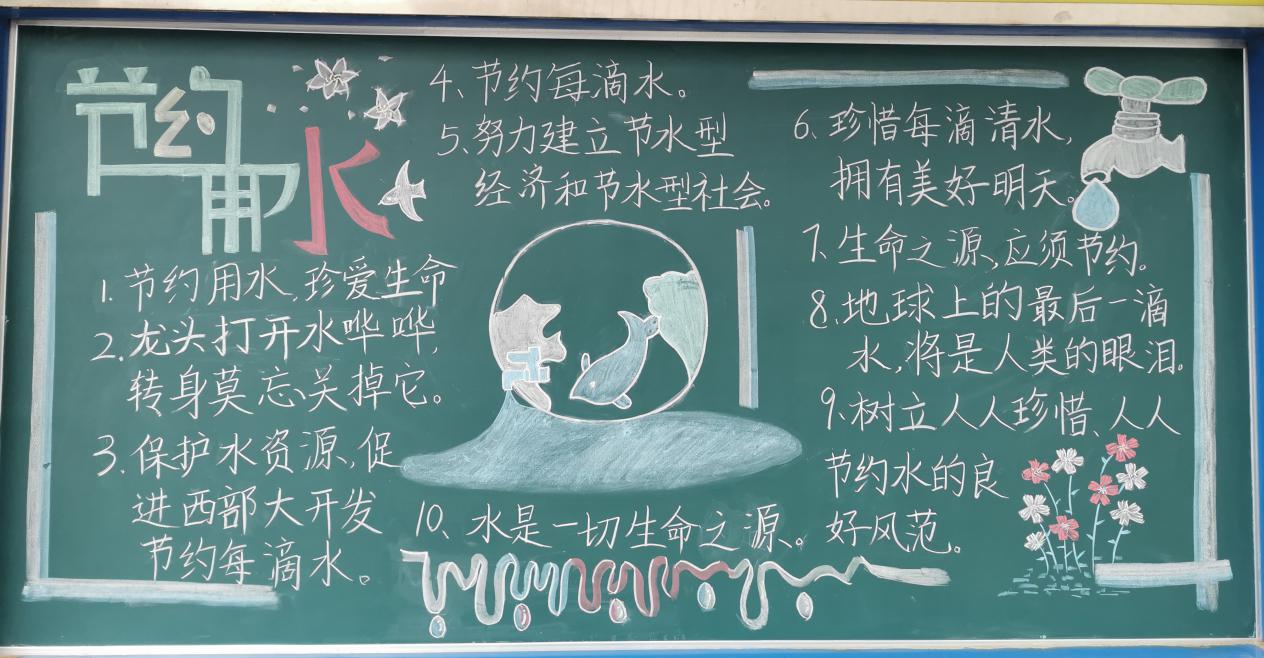 节约用水
1.节约用水,珍爱生命
2.龙头打开水哗哗,
转身莫忘关掉它。
3.保护水资源,促
进西部大开发
节约每滴水。
4、节约每滴水。
5、努力建立节水型
经济和节水型社会。
6、珍惜每滴清水,
拥有美好明天。
7、生命之源、应须节约。
8、地球上的最后一滴
水,将是人类的眼泪。
9、树立人人珍惜、人人
节约水的良
好风范。
10、水是一切生命之源。